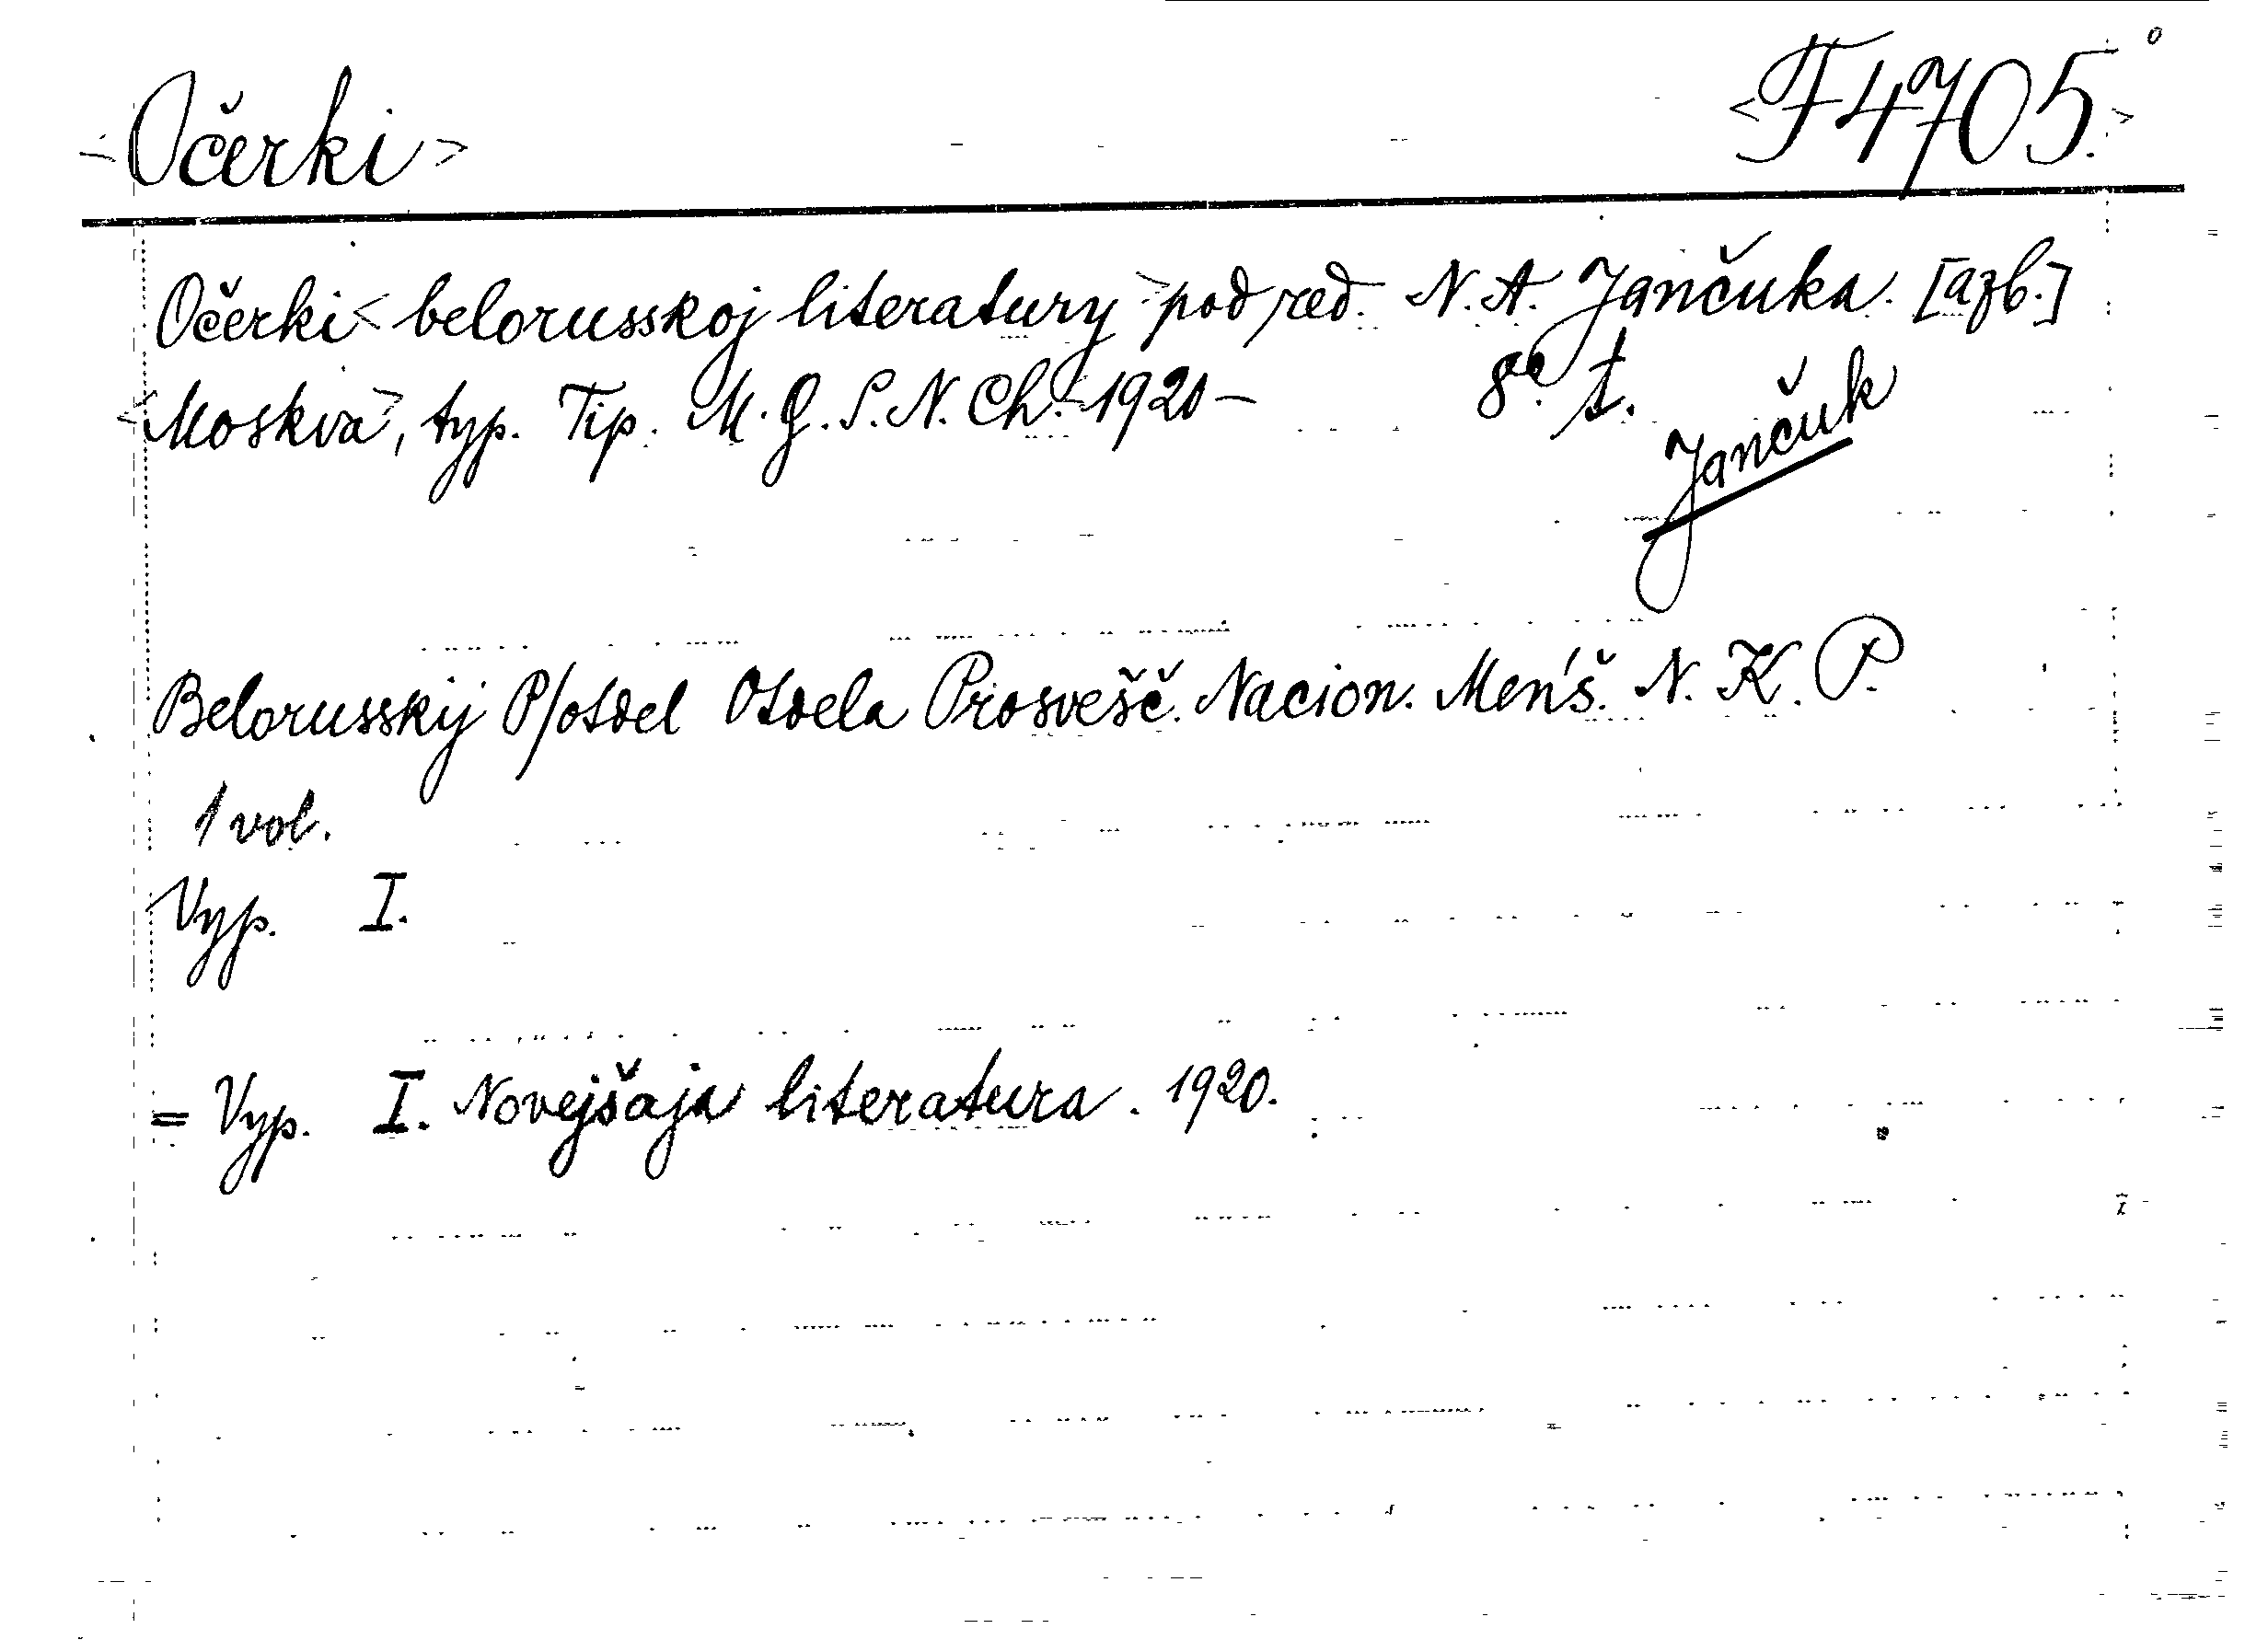 <Očerki> <F4705.>
Očerki < belorusskoj literatury > pod red. N. A. Jančuka. [azb.]
<Moskva>, typ. Tip. M. G. S. N. Ch. <1920- 8° t.
Jančuk
Belorusskij P/otdel Otdela Prosvešč. Nacion. Men'š. N. K. P.
1 vol.
Vyp. I.
= Vyp. I. Novejšaja literatura. 1920.